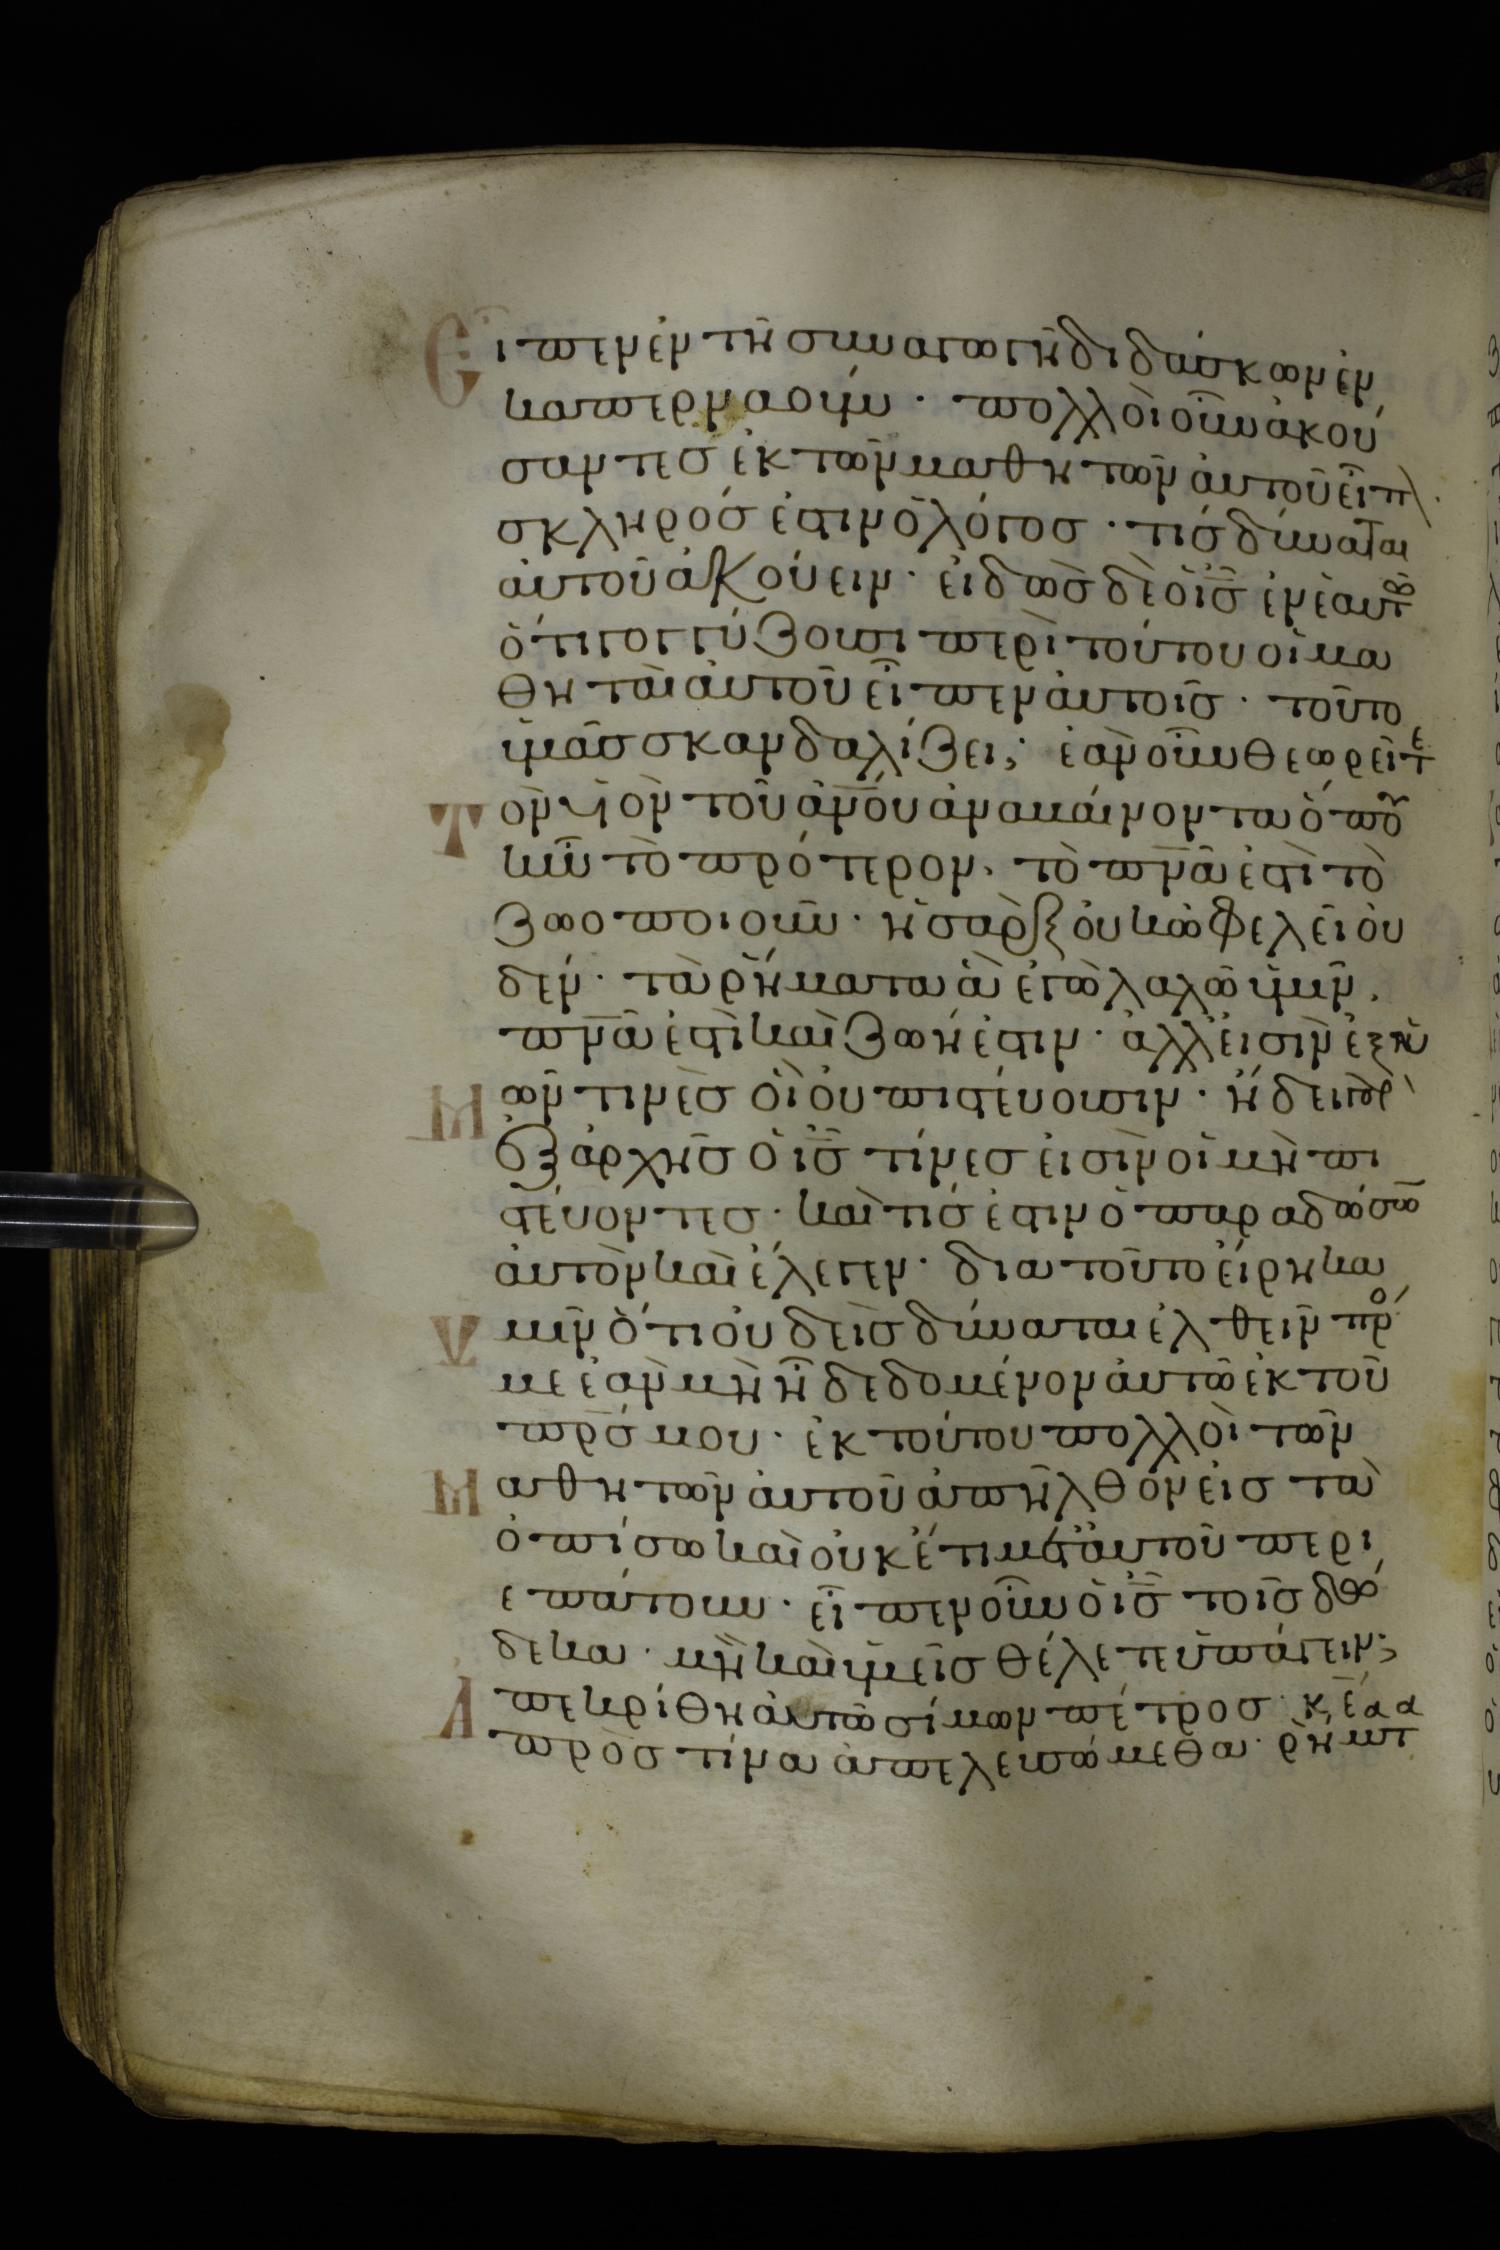 Εἶπεν ἐν τῆ συναγωγῆ διδάσκων ἐν
καπερναούμ · πολλοὶ οὖν ἀκού
σαντες ἐκ τῶν μαθητῶν αὐτοῦ εἶπ
σκληρός ἐστιν ὁ λόγος · τίς δύναται
αὐτοῦ ἀκούειν · εἰδὼς δὲ ὁ ἰς ἐν ἑαυτῶ
ὅτι γογγύζουσι περὶ τούτου οἱ μα
θηταὶ αὐτοῦ εἶπεν αὐτοῖς · τοῦτο
ὑμᾶς σκανδαλίζει; ἐὰν οὖν θεωρεῖτε
Τὸν υἱὸν τοῦ ἀνου ἀναβαίνοντα ὅπου
ἦν τὸ πρότερον · τὸ πνα ἐστὶ τὸ
ζωοποιοῦν · ἡ σὰρξ οὐκ ὠφελεῖ οὐ
δέν · τὰ ῥήματα ἃ ἐγὼ λαλῶ ὑμῖν ·
πνα ἐστὶ καὶ ζωή ἐστιν · ἀλλ εἰσὶν ἐξ ὑ
Μῶν τινὲς οἳ οὐ πιστεύουσιν · ἤδει γὰρ
ἐξ ἀρχῆς ὁ ἰς τίνες εἰσὶν οἱ μὴ πι
στεύοντες · καὶ τίς ἐστιν ὁ παραδώσων
αὐτὸν καὶ ἔλεγεν · δια τοῦτο εἴρηκα
Ὑμῖν ὅτι οὐδεὶς δύναται ἐλθεῖν πρός
με ἐὰν μὴ ἦ δεδομένον αὐτῶ ἐκ τοῦ
πρς μου · ἐκ τούτου πολλοὶ τῶν
Μαθητῶν αὐτοῦ ἀπῆλθον εἰς τὰ
ὀπίσω καὶ οὐκέτι μετ αὐτοῦ περι
επάτουν · εἶπεν οὖν ὁ ἰς τοῖς δώ
δεκα · μὴ καὶ ὑμεῖς θέλετε ὑπάγειν;
Ἀπεκρίθη αὐτῶ σίμων πέτρος · κε
πρὸς τίνα ἀπελευσώμεθα · ῥήματ